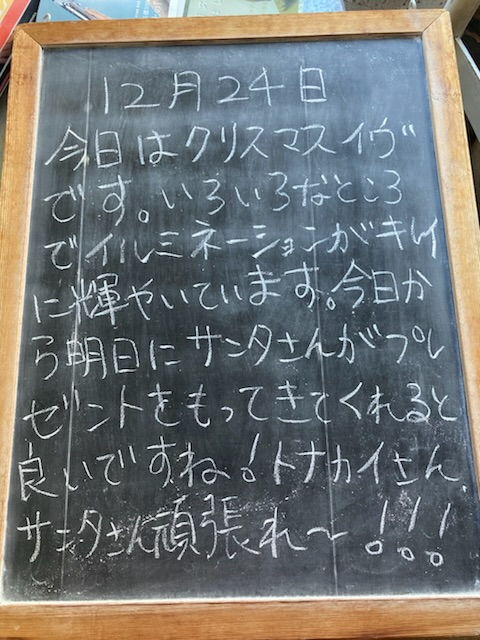 12月24日
今日はクリスマスイヴ
です。いろいろなところ
でイルミネーションがキレイ
に輝やいています。今日か
ら明日にサンタさんがプレ
ゼントをもってきてくれると
良いですね!トナカイさん、
サンタさん頑張れ〜!!!